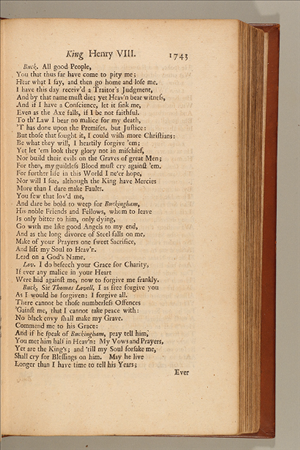 King Henry VIII. 1743
Buck. All good People,
You that thus far have come to pity me;
Hear what I say, and then go home and lose me.
I have this day receiv'd a Traitor's Judgment,
And by that name must die; yet Heav'n bear witness,
And if I have a Conscience, let it sink me,
Even as the Axe falls, if I be not faithful.
To th' Law I bear no malice for my death,
'T has done upon the Premises, but Justice:
But those that sought it, I could wish more Christians:
Be what they will, I heartily forgive 'em;
Yet let 'em look they glory not in mischief,
Nor build their evils on the Graves of great Men;
For then, my guiltless Blood must cry against 'em.
For further life in this World I ne'er hope,
Nor will I sue, although the King have Mercies
More than I dare make Faults.
You few that lov'd me,
And dare be bold to weep for Buckingham,
His noble Friends and Fellows, whom to leave
Is only bitter to him, only dying,
Go with me like good Angels to my end,
And as the long divorce of Steel falls on me,
Make of your Prayers one sweet Sacrifice,
And lift my Soul to Heav'n.
Lead on a God's Name.
Lov. I do beseech your Grace for Charity,
If ever any malice in your Heart
Were hid against me, now to forgive me frankly.
Buck. Sir Thomas Lovell, I as free forgive you
As I would be forgiven: I forgive all.
There cannot be those numberless Offences
'Gainst me, that I cannot take peace with:
No black envy shall make my Grave.
Commend me to his Grace:
And if he speak of Buckingham, pray tell him,
You met him half in Heav'n: My Vows and Prayers,
Yet are the King's; and 'till my Soul forsake me,
Shall cry for Blessings on him. May he live
Longer than I have time to tell his Years;
Ever